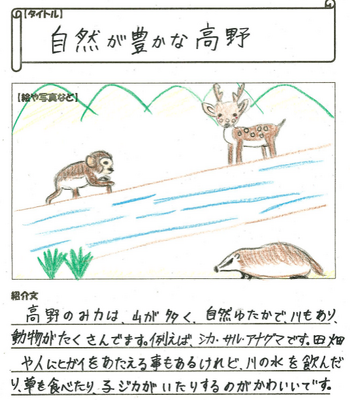 【タイトル】
自然が豊かな高野
【絵や写真など】
紹介文
高野のみ力は、山が多く、自然ゆたかで、川もあり、
動物がたくさんでます。例えば、シカ・サル・アナグマです。田畑
や人にヒガイをあたえる事もあるけれど、川の水を飲んだ
り、草も食べたり、子ジカがいたりするのがかわいいです。